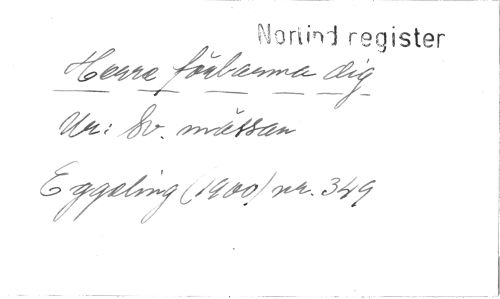 Norlind register
Herre förbarma dig
Ur: Sv. mässan
Eggeling (1900) nr. 349